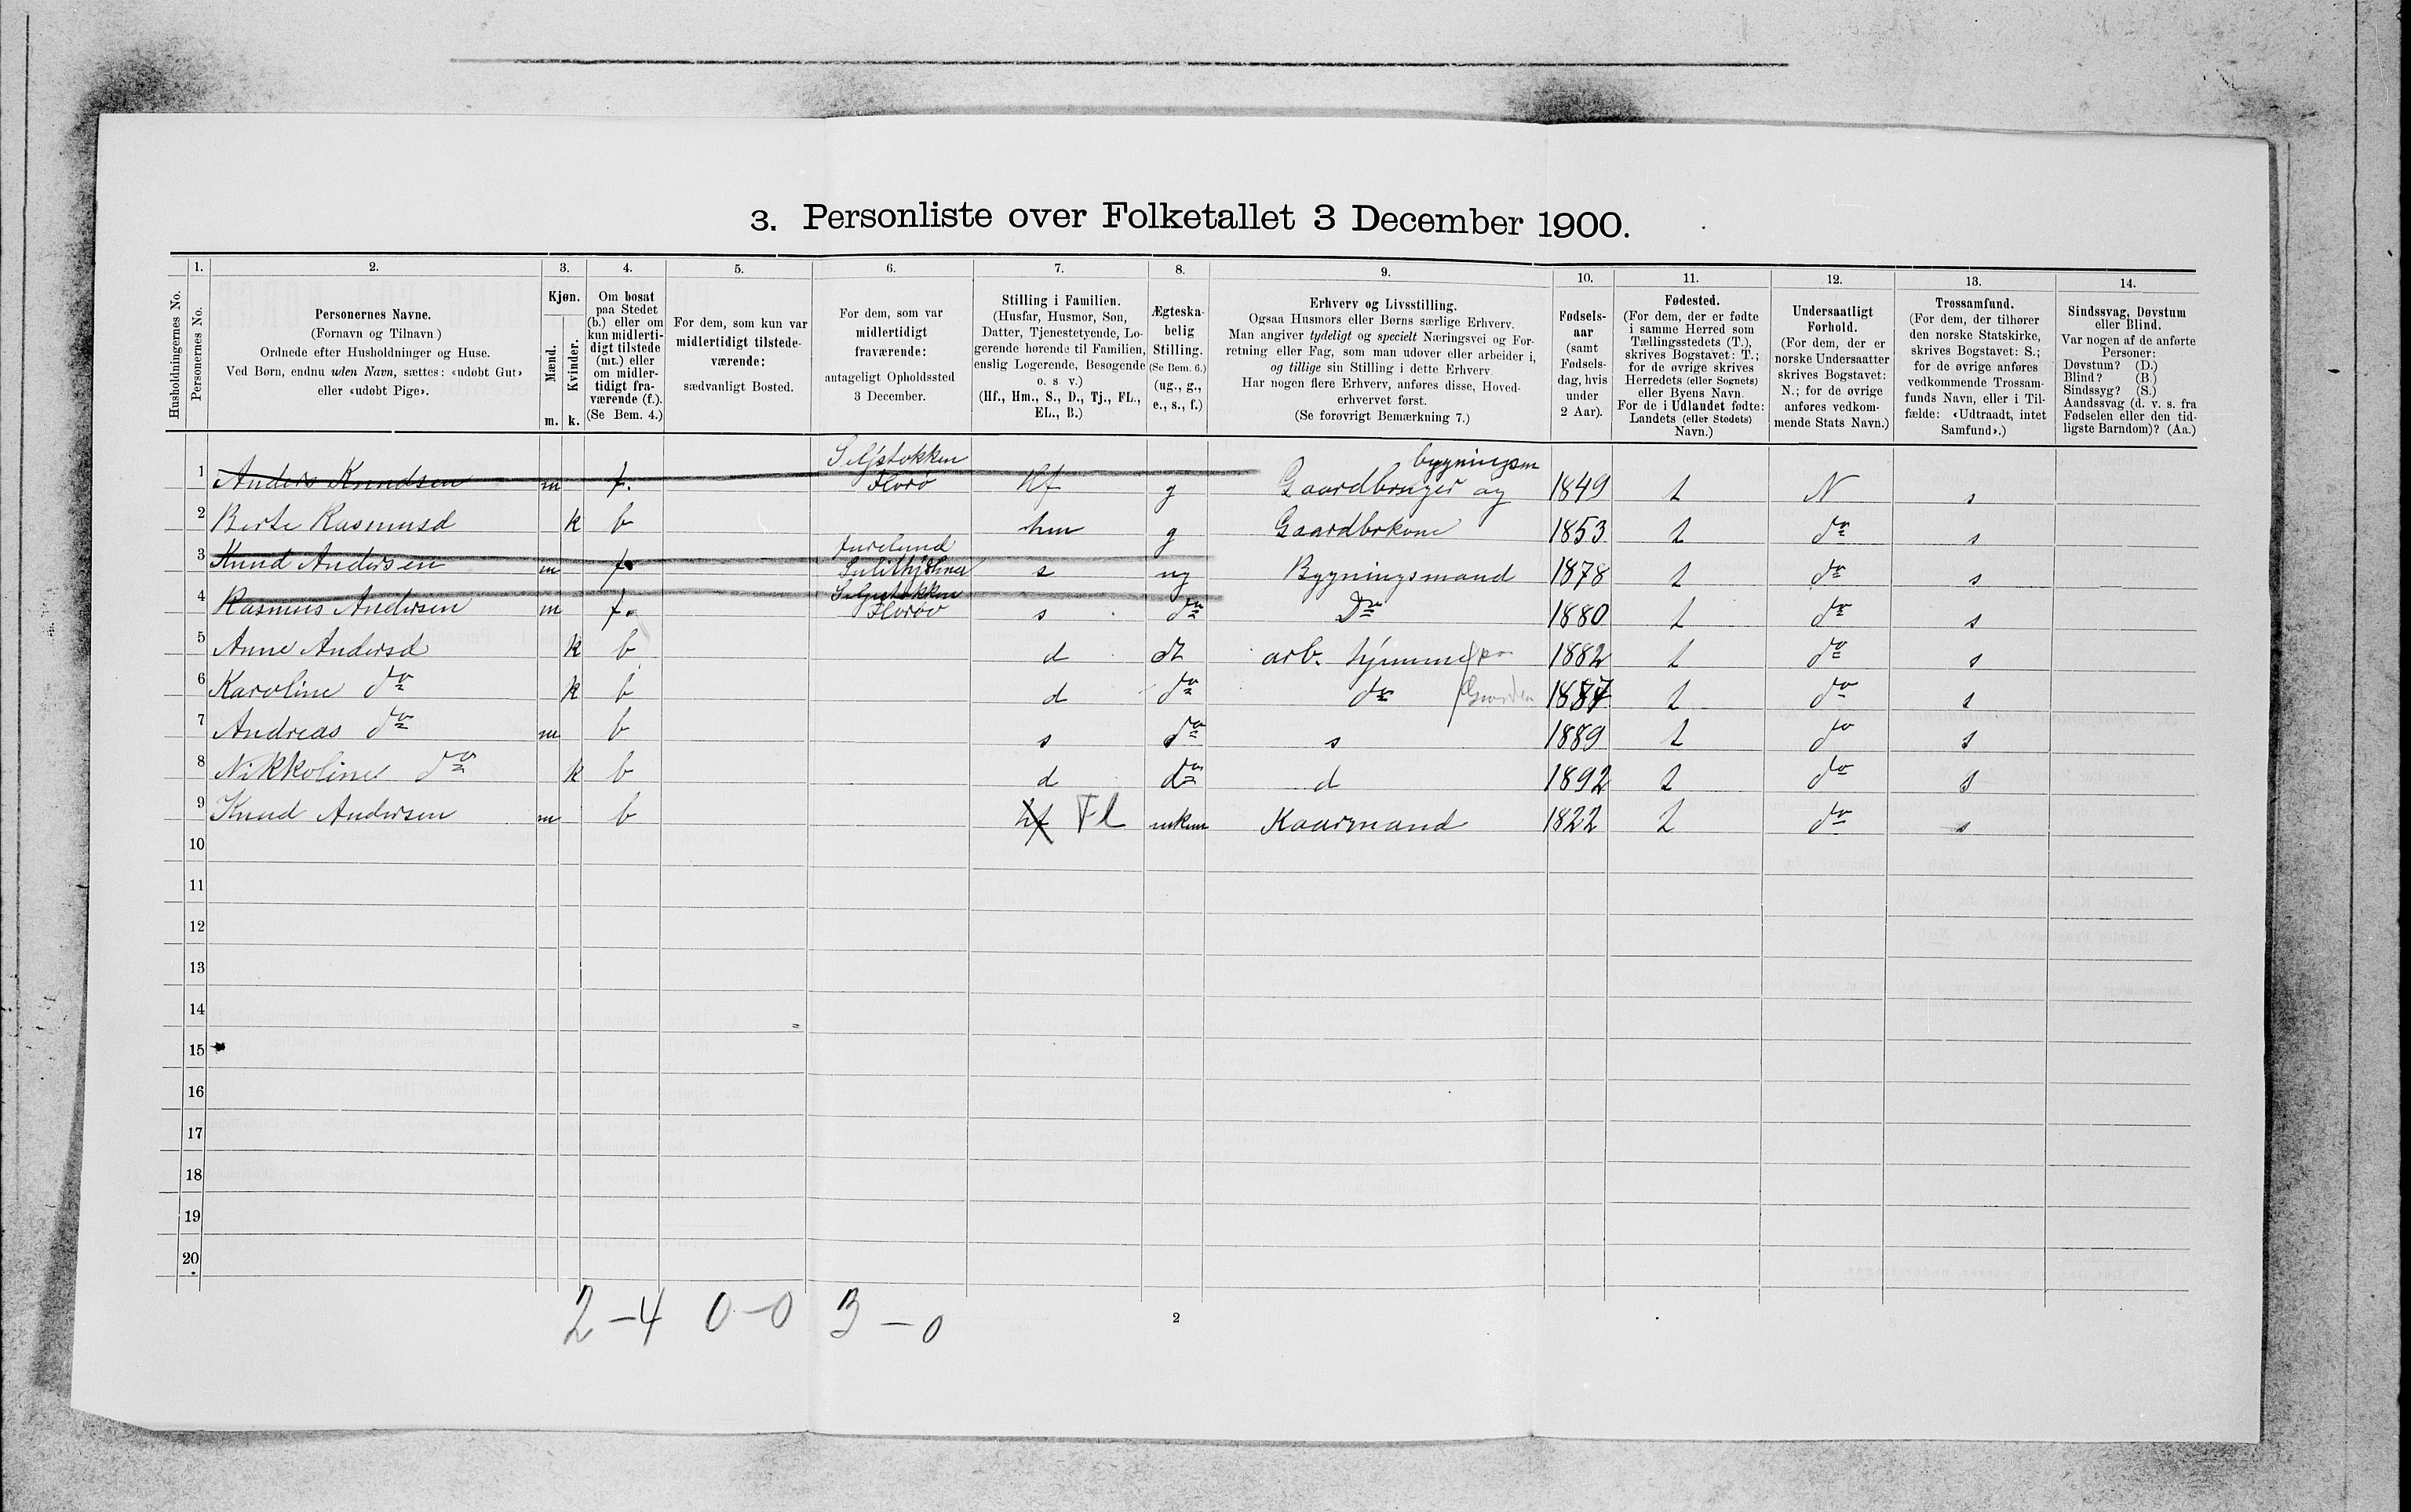 3. Personliste over Folketallet 3 December 1900.
Husholdningernes No.
1. Personernes No.
2. Personernes Navne.
(Fornavn og Tilnavn)
Ordnede efter Husholdninger og Huse.
Ved Børn, endnu uden Navn, sættes: «udøbt Gut»
eller «udøbt Pige».
3. Kjøn.
Mænd. m.
Kvinder. k.
4. Om bosat
paa Stedet
(b.) eller om
kun midlerti-
digt tilstede
(mt.) eller
om midler-
tidigt fra-
værende (f.).
(Se Bem. 4.)
5. For dem, som kun var
midlertidigt tilstede-
værende:
sædvanligt Bosted.
6. For dem, som var
midlertidigt
fraværende:
antageligt Opholdssted
3 December.
7. Stilling i Familien.
(Husfar, Husmor, Søn,
Datter, Tjenestetyende, Lo-
gerende hørende til Familien,
enslig Logerende, Besøgende
o. s. v.)
(Hf., Hm., S., D., Tj., FL.,
EL., B.)
8. Ægteska-
belig
Stilling.
(Se Bem. 6.)
(ug., g.,
e., s., f.)
9. Erhverv og Livsstilling.
Ogsaa Husmors eller Børns særlige Erhverv.
Man angiver tydeligt og specielt Næringsvei og For-
retning eller Fag, som man udøver eller arbeider i,
og tillige sin Stilling i dette Erhverv.
Har nogen flere Erhverv, anføres disse, Hoved-
erhvervet først.
(Se forøvrigt Bemærkning 7.)
10. Fødsels-
aar
(samt
Fødsels-
dag, hvis
under
2 Aar).
11. Fødested.
(For dem, der er fødte
i samme Herred som
Tællingsstedets (T.),
skrives Bogstavet: T.;
for de øvrige skrives
Herredets (eller Sognets)
eller Byens Navn.
For de i Udlandet fødte:
Landets (eller Stedets)
Navn.)
12. Undersaatligt
Forhold.
(For dem, der er
norske Undersaatter
skrives Bogstavet:
N.; for de øvrige
anføres vedkom-
mende Stats Navn.)
13. Trossamfund.
(For dem, der tilhører
den norske Statskirke,
skrives Bogstavet: S.;
for de øvrige anføres
vedkommende Trossam-
funds Navn, eller i Til-
fælde: «Udtraadt, intet
Samfund».)
14. Sindssvag, Døvstum
eller Blind.
Var nogen af de anførte
Personer:
Døvstum? (D.)
Blind? (B.)
Sindssyg? (S.)
Aandssvag (d. v. s. fra
Fødselen eller den tid-
ligste Barndom)? (Aa.)
Seljstokken bygningsm
1 Anders Knudsen m f. Florø hf g Gaardbruger og 1849 t N s
2 Berte Rasmusd k b hm g Gaardbrkone 1853 t do s
3 Knud Andersen m f. Sulithjelma s ug Bygningsmand 1878 t do s
4 Rasmus Andersen m f. Florøo s do Do 1880 t do s
5 Anne Andersd k b d dt arb. hjemme paa 1882 t do s
6 Karoline do k b d do do Gaarden 1887 t do s
7 Andreas do m b s do s 1889 t do s
8 Nikkoline do k b d do d 1892 t do s
9 Knud Andersen m b hf Fl enkem Kaarmand 1822 t do s
10
11
12
13
14
15
16
17
18
19
20
2 – 4 0 – 0 3 – 0
2